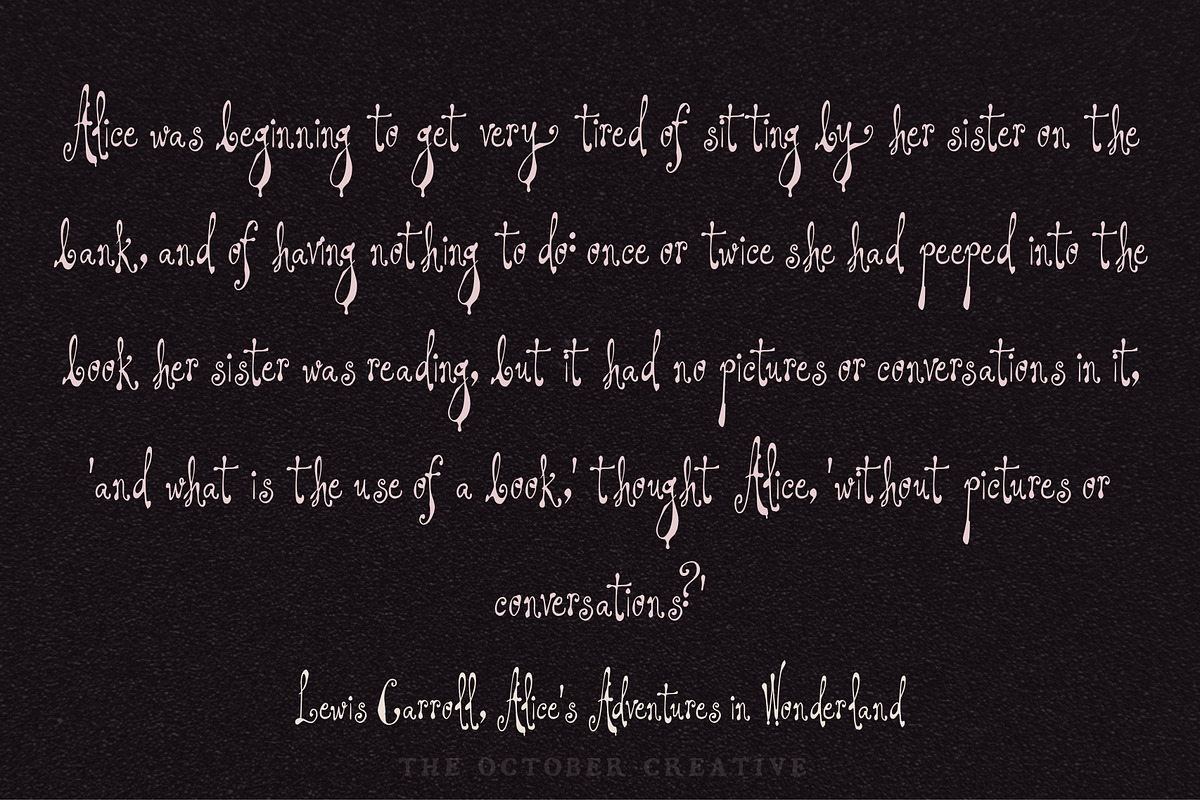 Alice was beginning to get very tired of sitting by her sister on the
bank, and of having nothing to do: once or twice she had peeped into the
book her sister was reading, but it had no pictures or conversations in it,
'and what is the use of a book,' thought Alice, 'without pictures or
conversations?'
Lewis Carroll, Alice's Adventures in Wonderland
THE OCTOBER CREATIVE